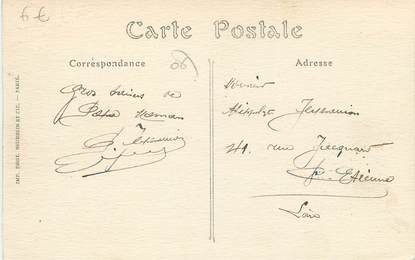 6 €
Carte Postale
Correspondance
06
Adresse
Gros baisers de
Papa Maman
Monsieur
Hippolyte
41 rue Jacquard
St Etienne
Loire
IMP. PHOT. NEURDEIN ET CIE. — PARIS.